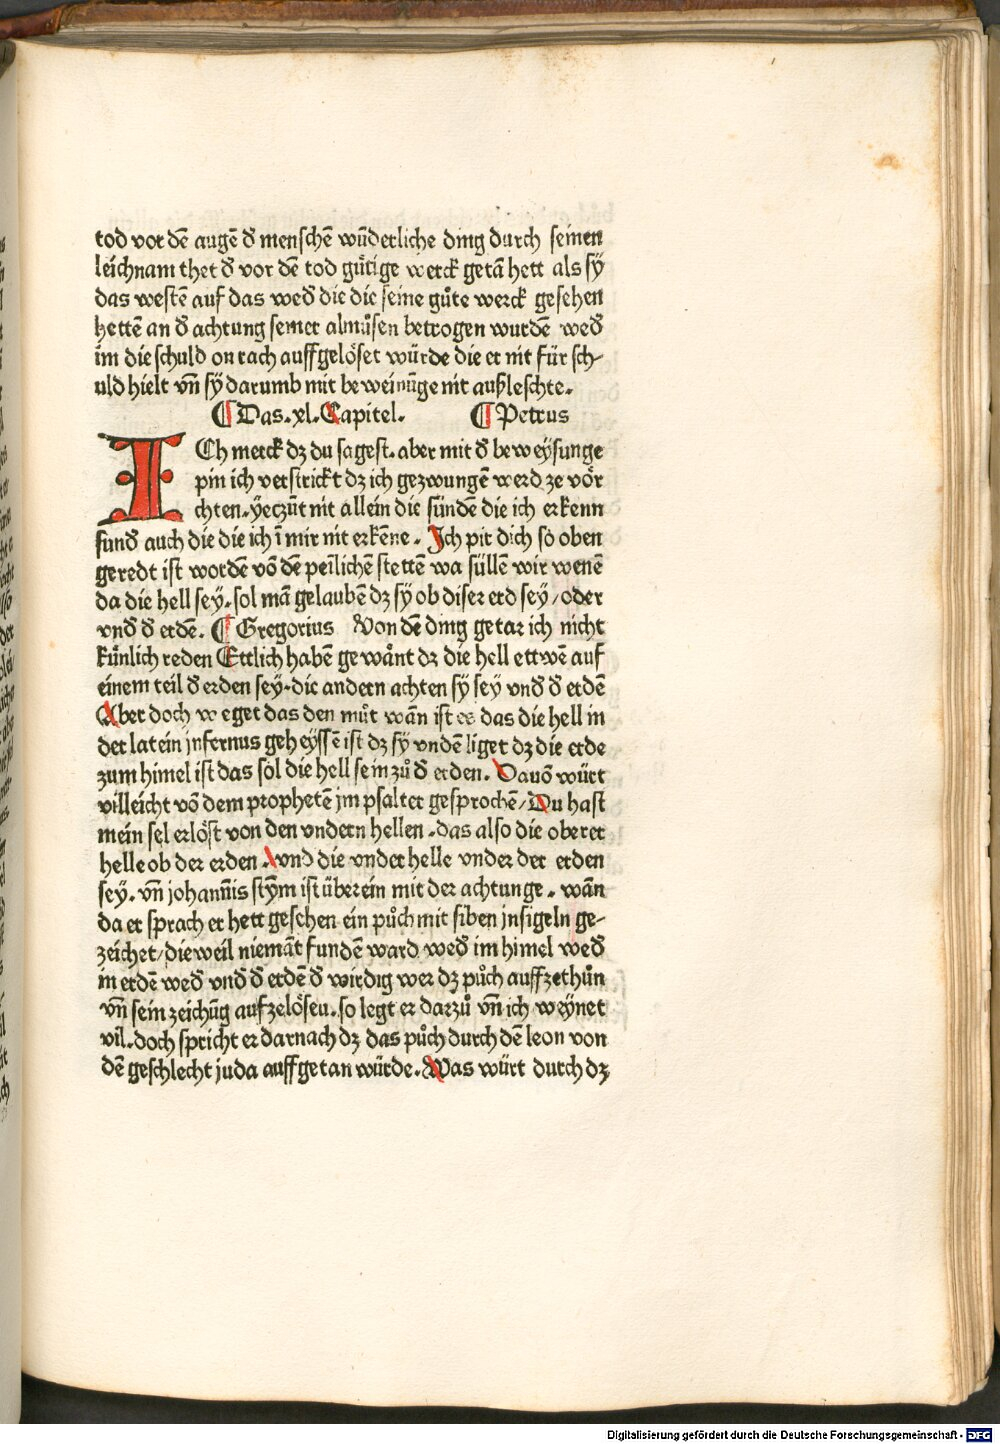 tod vor dē augē d̄ menschē wūderliche ding durch seinen
leichnam thet d̄ vor dē tod gütige werck getā hett als sÿ
das westē auf das wed̄ die die seine gůte werck gesehen
hettē an d̄ achtung semer almůsen betrogen wurdē wed̄
im die schuld on rach auffgelöset würde die er nit für sch⸗
uld hielt vn̄ sÿ darumb mit beweinūge nit außleschte.
¶ Das .xl. Capitel. ¶ Petrus
ICh merck dʒ du sagest. aber mit d̄ beweÿsunge
pin ich verstrickt dʒ ich gezwungē werd ze vör
chten. ÿeczūt nit allein die sündē die ich erkenn
sund̄ auch die die ich ī mir nit erkēne. Ich pit dich so oben
geredt ist wordē vō dē peilichē stettē wa süllē wir wenē
da die hell sey. sol mā gelaubē dʒ sÿ ob diser erd sey / oder
vnd̄ d̄ erdē. ¶ Gregorius Von dē ding getar ich nicht
künlich reden Ettlich habē gewånt dʒ die hell ettwē auf
einem teil d̄ erden sey. die andern achten sÿ sey vnd̄ d̄ erdē
Aber doch weget das den můt wān ist es das die hell in
der latein jnfernus geheÿssē ist dʒ sÿ vndē liget dʒ die erde
zum himel ist das sol die hell sein zů d̄ erden. Dauō würt
villeicht vō dem prophetē jm psalter gesprochē / Du hast
mein sel erlöst von den vndern hellen. das also die oberer
helle ob der erden. vnd die vnder helle vnder der erden
sey. vn̄ johannis stÿm ist überein mit der achtunge. wān
da er sprach er hett gesehen ein půch mit siben jnsigeln ge⸗
zeichet / die weil niemāt fundē ward wed̄ im himel wed̄
in erdē wed̄ vnd̄ d̄ erdē d̄ wirdig wer dʒ půch auffzethůn
vn̄ sein zeichūg aufzelösen. so legt er darzů vn̄ ich weÿnet
vil. doch spricht er darnach dʒ das půch durch dē leon von
dē geschlecht juda auffgetan würde. Was würt durch dʒ
Digitalisierung gefördert durch die Deutsche Forschungsgemeinschaft - DFG